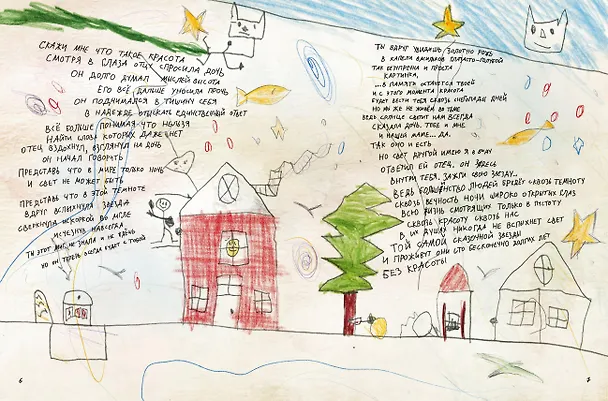 Скажи мне что такое красота
Смотря в глаза отцу спросила дочь
Он долго думал мыслей высота
Его всё дальше уносила прочь
Он поднимался в тишину себя
В надежде отыскать единственный ответ
Всё больше понимая что нельзя
Найти слова которых даже нет
Отец вздохнул, взглянул на дочь
Он начал говорить
Представь что в мире только ночь
И свет не может быть
Представь что в этой темноте
Вдруг вспыхнула звезда
Сверкнула искоркой во мгле
Исчезнув навсегда
Ты этот миг не знала и не ждала
Но он теперь всегда будет с тобой
6
Ты вдруг увидишь золотую рожь
В капела васильков
Так безупречна и проста
Картинка,
...в память останется твоей
И с этого момента красота
Будет вести тебя сквозь
Но мы же не живём во тьме
Ведь солнце светит нам всегда
Сказала дочь, тебе и мне
И нашей маме... да.
Так оно и есть
Но свет другой имею я в виду
Ответил ей отец, он здесь
Внутри тебя. Зажги свою звезду...
Ведь большинство людей бредёт сквозь темноту
Сквозь вечность ночи широко открытых глаз
Всю жизнь смотрящих только в пустоту
Сквозь красоту сквозь нас
В их душах никогда не вспыхнет свет
Той самой сказочной звезды
И проживут они сто бесконечно долгих лет
Без красоты